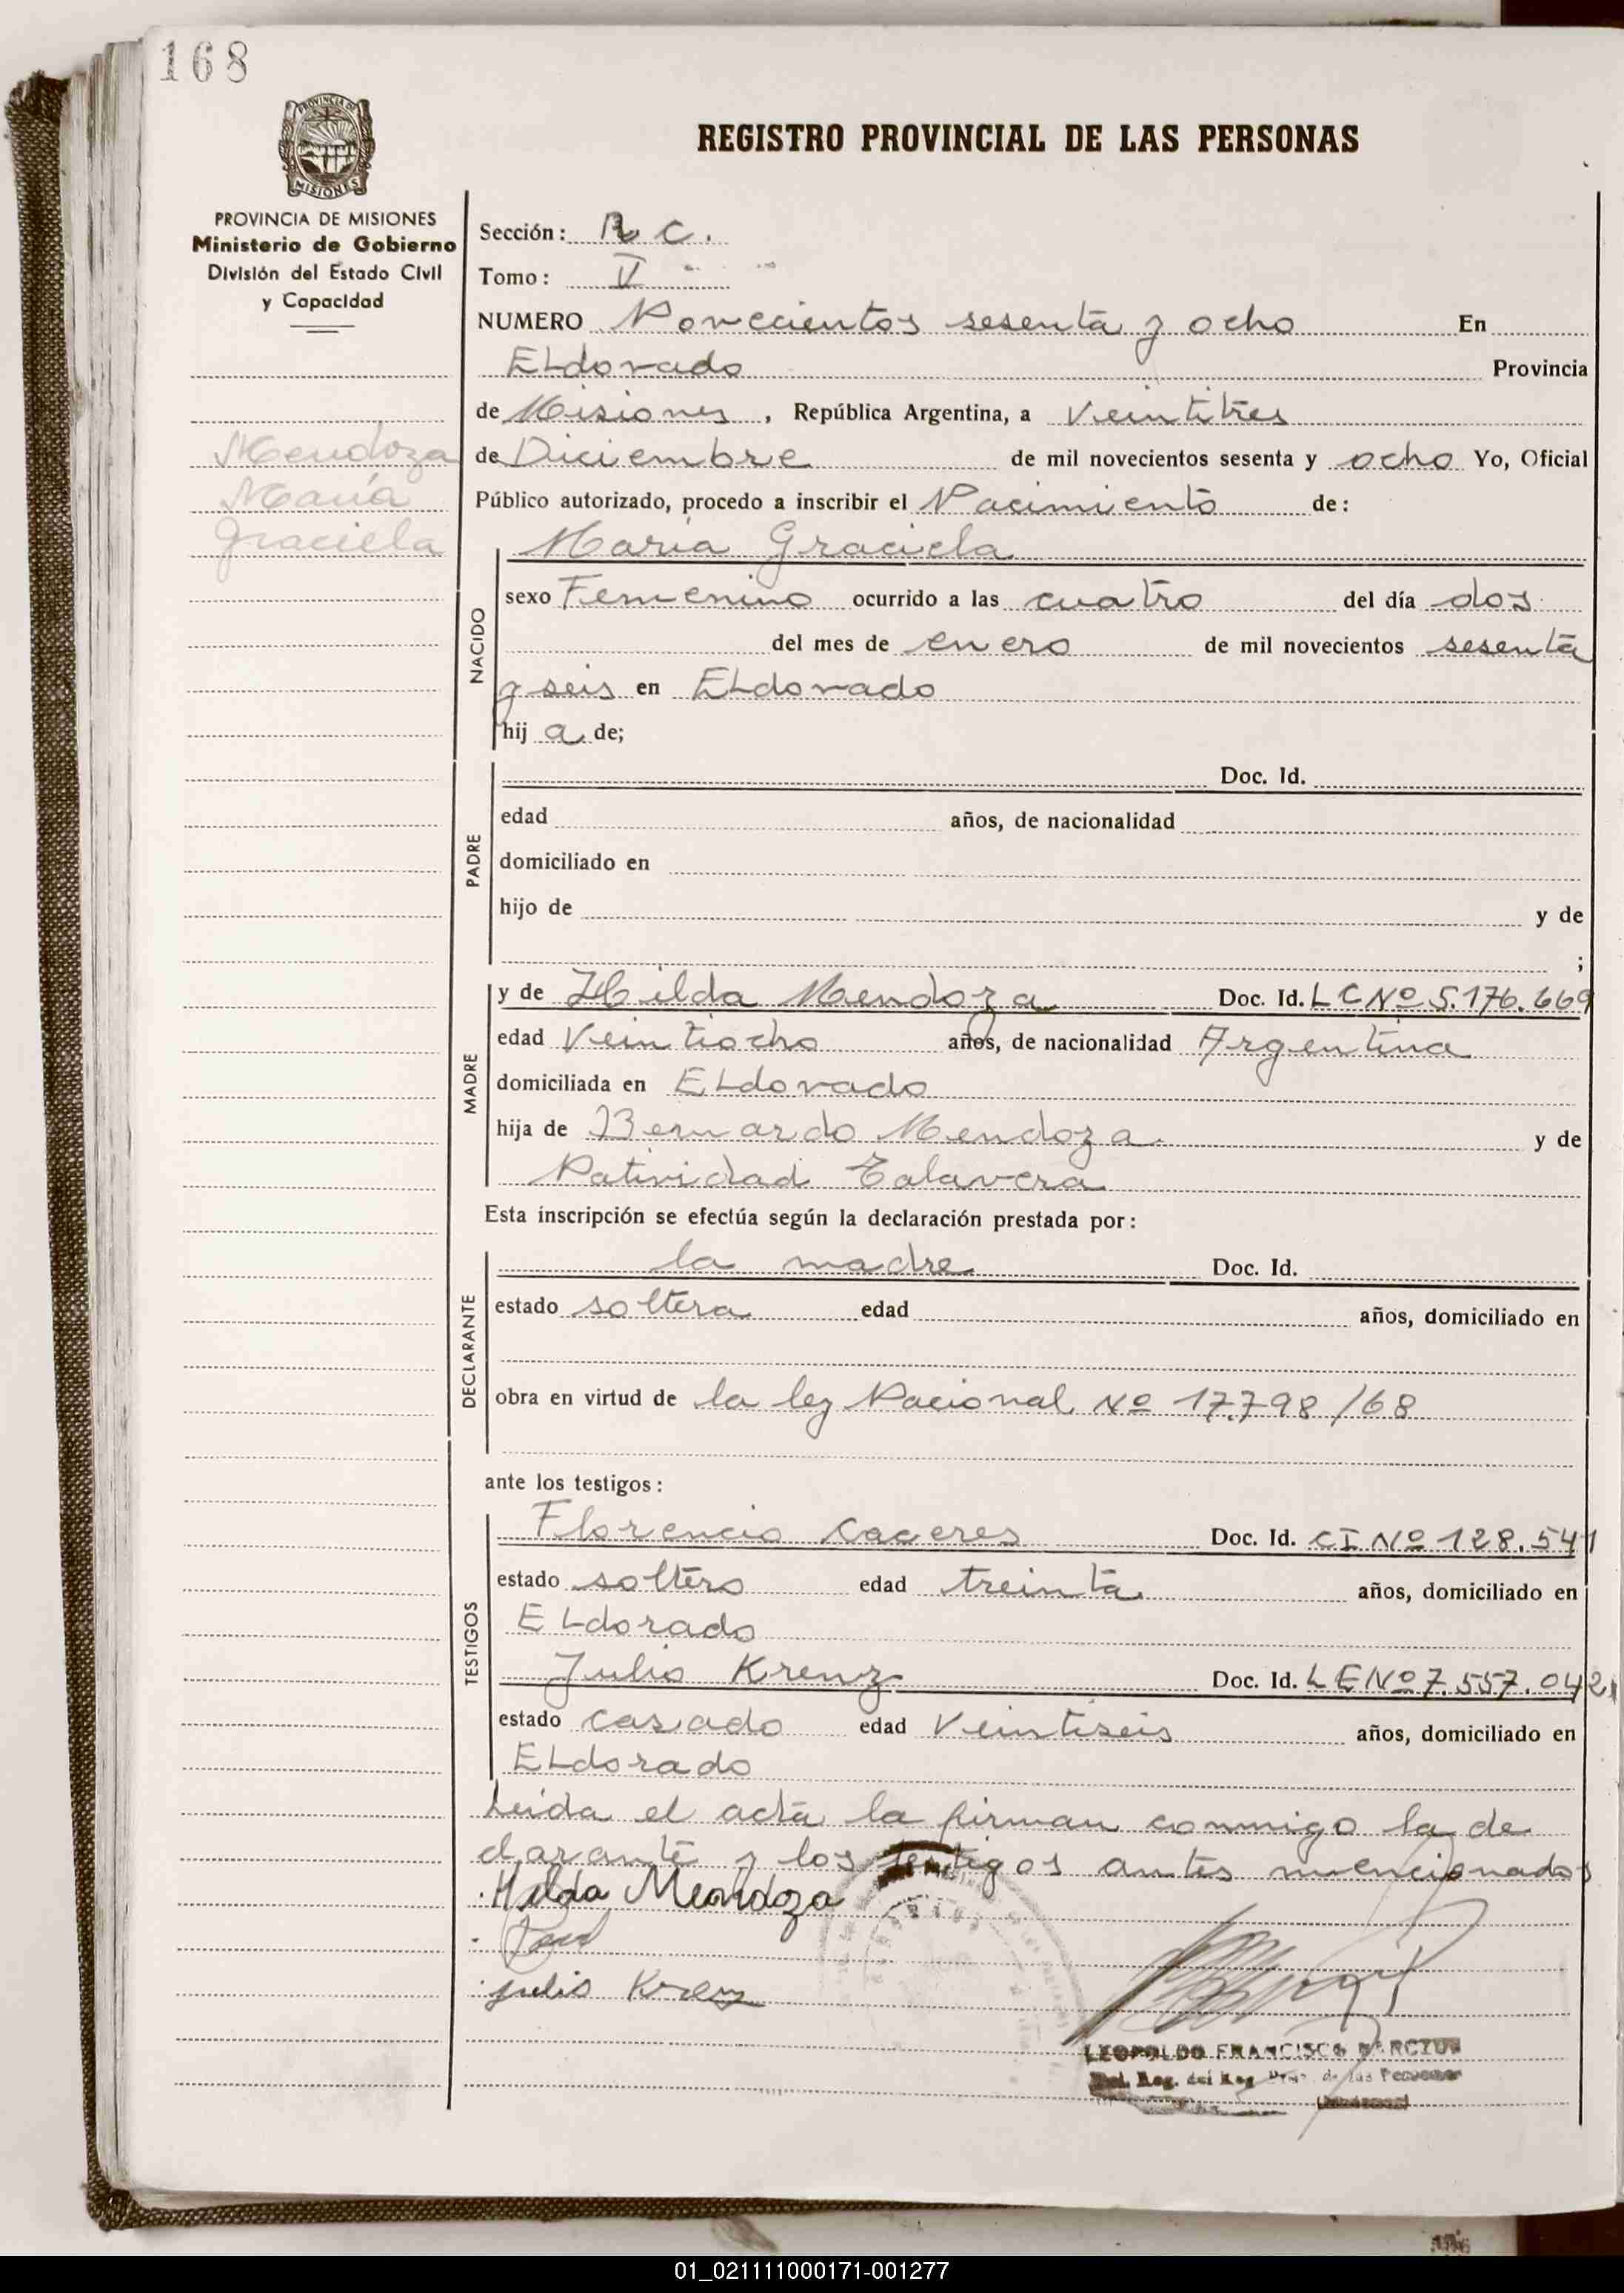 168
PROVINCIA DE
MISIONES
REGISTRO PROVINCIAL DE LAS PERSONAS
PROVINCIA DE MISIONES
Ministerio de Gobierno
División del Estado Civil
y Capacidad
Mendoza
María
Graciela
Sección: R C.
Tomo: V
NUMERO Novecientos sesenta y ocho En
ELdorado Provincia
de Misiones, República Argentina, a Veintitres
de Diciembre de mil novecientos sesenta y ocho Yo, Oficial
Público autorizado, procedo a inscribir el Nacimiento de:
NACIDO
María Graciela
sexo Femenino ocurrido a las cuatro del día dos
del mes de enero de mil novecientos sesenta
y seis en ELdorado
hij a de;
PADRE
Doc. Id.
edad años, de nacionalidad
domiciliado en
hijo de y de
;
MADRE
y de Hilda Mendoza Doc. Id. LC Nº 5.176.669
edad Veintiocho años, de nacionalidad Argentina
domiciliada en ELdorado
hija de Bernardo Mendoza y de
Natividad Talavera
Esta inscripción se efectúa según la declaración prestada por:
DECLARANTE
la madre Doc. Id.
estado soltera edad años, domiciliado en
obra en virtud de la ley Nacional Nº 17.798/68
ante los testigos:
TESTIGOS
Florencio Caceres Doc. Id. CI Nº 128.541
estado soltero edad treinta años, domiciliado en
ELdorado
Julio Krenz Doc. Id. LE Nº 7.557.042
estado casado edad Veintiseis años, domiciliado en
ELdorado
Leida el acta la firman conmigo la de
clarante y los testigos antes mencionados
Hilda Mendoza
Julio Krenz
LEOPOLDO FRANCISCO
de las Personas
01_021111000171-001277